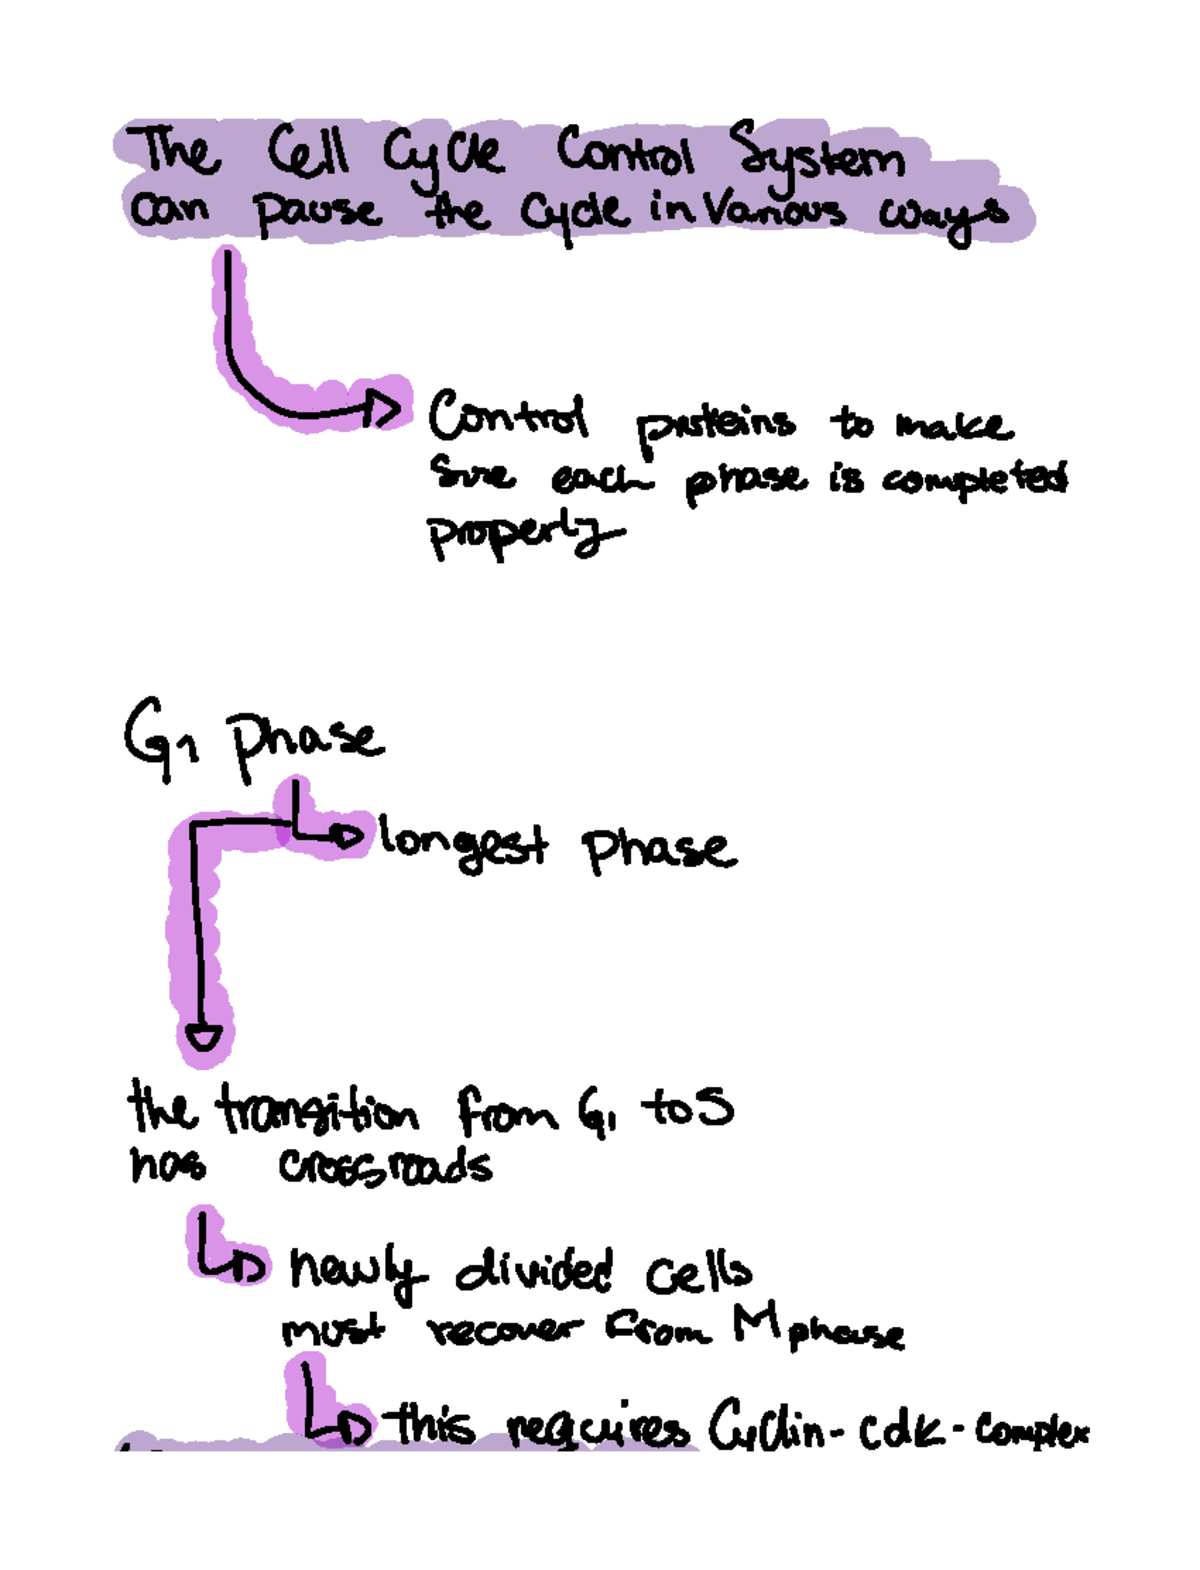 The Cell Cycle Control System
can pause the Cycle in Various ways
Control proteins to make
sure each phase is completed
properly
G1 phase
longest phase
the transition from G1 to S
has crossroads
newly divided cells
must recover from M phase
this requires Cyclin-cdk-complex